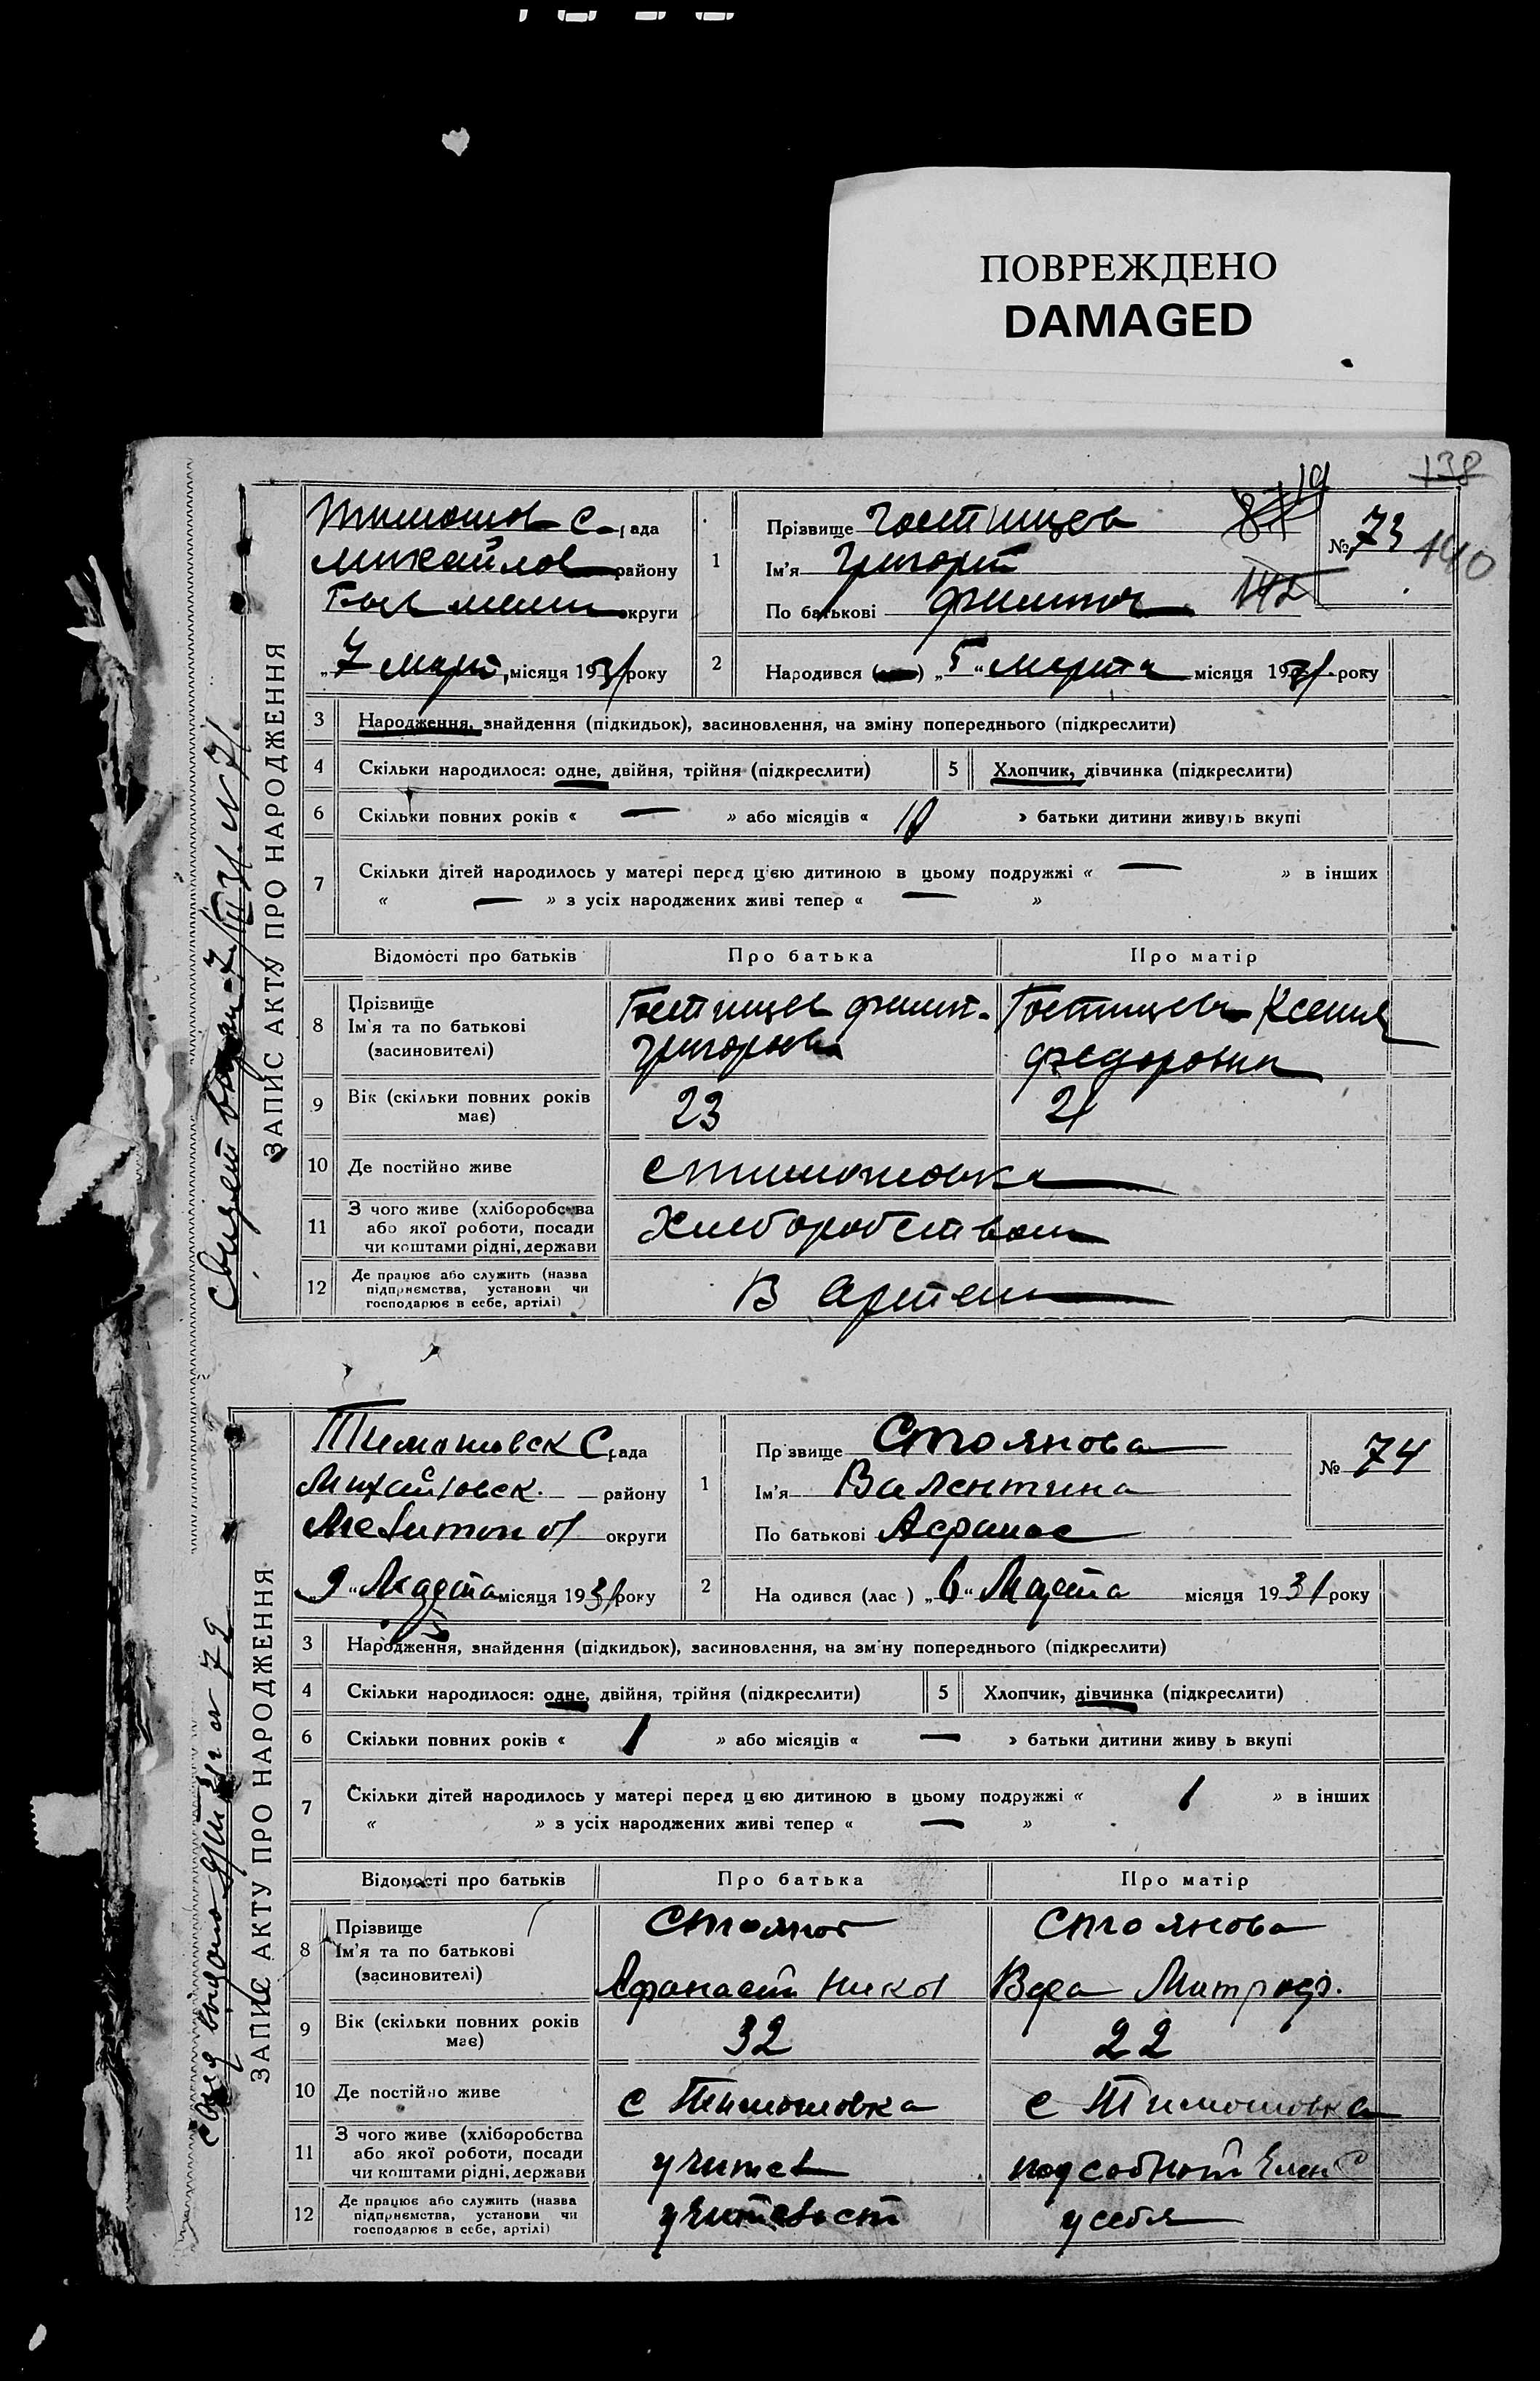 ПОВРЕЖДЕНО
DAMAGED
138
140
19
ЗАПИС АКТУ ПРО НАРОДЖЕННЯ
Тимошов С. рада
Михайлов району
округи
„7 Март, місяця 1931 року
1
Прізвище Гостищев
Ім'я Григорій
По батькові Филипов
№ 73
2
Народився ( ) „5“ Марта місяця 1931 року
3 Народження, знайдення (підкидьок), засиновлення, на зміну попереднього (підкреслити)
4 Скільки народилося: одне, двійня, трійня (підкреслити) 5 Хлопчик, дівчинка (підкреслити)
6 Скільки повних років « — » або місяців « 10 » батьки дитини живуть вкупі
7 Скільки дітей народилось у матері перед цією дитиною в цьому подружжі « — » в інших
« — » з усіх народжених живі тепер « — »
Відомості про батьків Про батька Про матір
8 Прізвище
Ім'я та по батькові
(засиновителі)
Гостищев Филип.
Григоров
Гостищева Ксения
Федоровна
9 Вік (скільки повних років
має) 23 21
10 Де постійно живе с Тимошовка
11 З чого живе (хліборобства
або якої роботи, посади
чи коштами рідні, держави
Хлеборобством
12 Де працює або служить (назва
підприємства, установи чи
господарює в себе, артілі)
В Артели
ЗАПИС АКТУ ПРО НАРОДЖЕННЯ
Тимошовск С рада
Михайловск. району
Мелитопол округи
„9“ Марта місяця 1931 року
1
Прізвище Стоянова
Ім'я Валентина
По батькові Афанас
№ 74
2
На одився (лас ) „6“ Марта місяця 1931 року
3 Народження, знайдення (підкидьок), засиновлення, на зміну попереднього (підкреслити)
4 Скільки народилося: одне, двійня, трійня (підкреслити) 5 Хлопчик, дівчинка (підкреслити)
6 Скільки повних років « 1 » або місяців « — » батьки дитини живу ь вкупі
7 Скільки дітей народилось у матері перед ц єю дитиною в цьому подружжі « 1 » в інших
« » з усіх народжених живі тепер « — »
Відомості про батьків Про батька Про матір
8 Прізвище
Ім'я та по батькові
(засиновителі)
Стоянов
Афанасий Никол
Стоянова
Вера Митроф.
9 Вік (скільки повних років
має) 32 22
10 Де постійно живе с Тимошовка с Тимошовка
11 З чого живе (хліборобства
або якої роботи, посади
чи коштами рідні, держави
учител
подсобный
12 Де працює або служить (назва
підприємства, установи чи
господарює в себе, артілі)
у себя